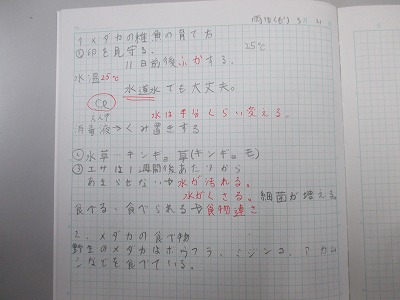 1. メダカの稚魚の育て方
①卵を見守る。 25℃
11日前後ふかする。
水温25℃
水道水でも大丈夫。
Cl 水は半分くらい変える。
えんそ
消毒液→くみ置きする
②水草…キンギョ草(キンギョモ)
③エサは1週間後あたりから
あまらせない→水が汚れる。
水がくさる。細菌が増える
食べる・食べられる→食物連さ
2. メダカの食べ物
野生のメダカはボウフラ、ミジンコ、アカム
シなどを食べている。